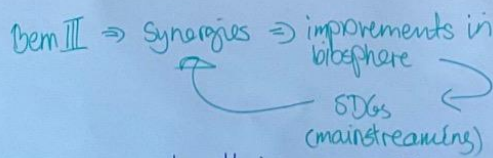 Bem III ⇒ Synergies ⇒ improvements in
biosphere
SDGs
(mainstreaming)